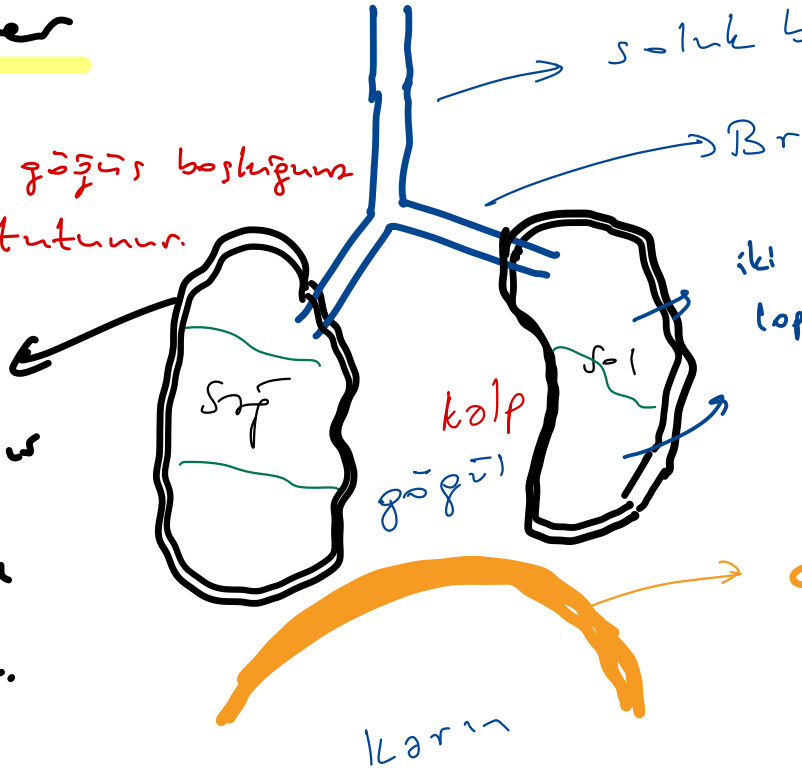 er
soluk b
Br
göğüs boşluğuna
tutunur.
iki
lop
Sağ
Sol
kalp
göğüs
Karın